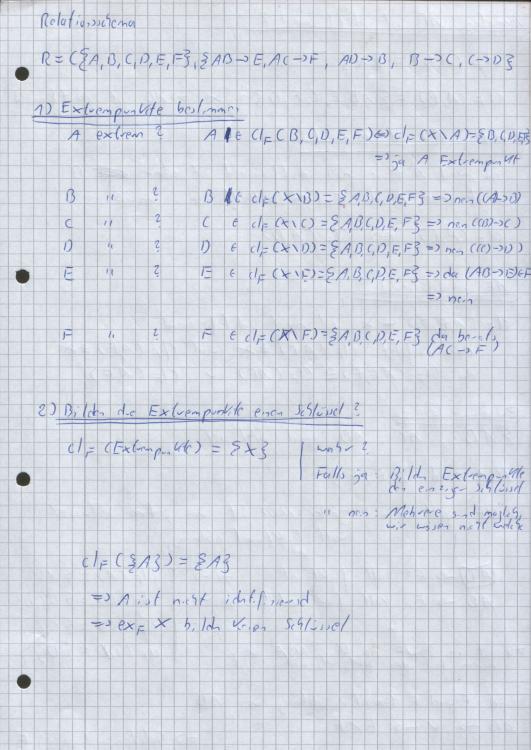 Relationsschema
R = ({A,B,C,D,E,F},{AB→E, AC→F, AD→B, B→C, C→D}
1) Extrempunkte bestimmen
A extrem ? A ∈ cl_F(B,C,D,E,F) ⇔ cl_F(X\A)={B,C,D,E,F}
⇒ ja A Extrempunkt
B " ? B ∈ cl_F(X\B)={A,B,C,D,E,F} ⇒ nein
C " ? C ∈ cl_F(X\C)={A,B,C,D,E,F} ⇒ nein ((B→C)
D " ? D ∈ cl_F(X\D)={A,B,C,D,E,F} ⇒ nein ((C→D)
E " ? E ∈ cl_F(X\E)={A,B,C,D,E,F} ⇒ da (AB→E)∈F
⇒ nein
F " ? F ∈ cl_F(X\F)={A,B,C,D,E,F} da bereits
(AC→F
2) Bilden die Extrempunkte einen Schlüssel ?
cl_F (Extrempunkte) = {X} wahr ?
Falls ja: Bilden Extrempunkte
den einzigen Schlüssel
" nein: Mehrere sind möglich,
wir wissen nicht welche
cl_F({A}) = {A}
⇒ A ist nicht identifizierend
⇒ ex_F X bilden keinen Schlüssel